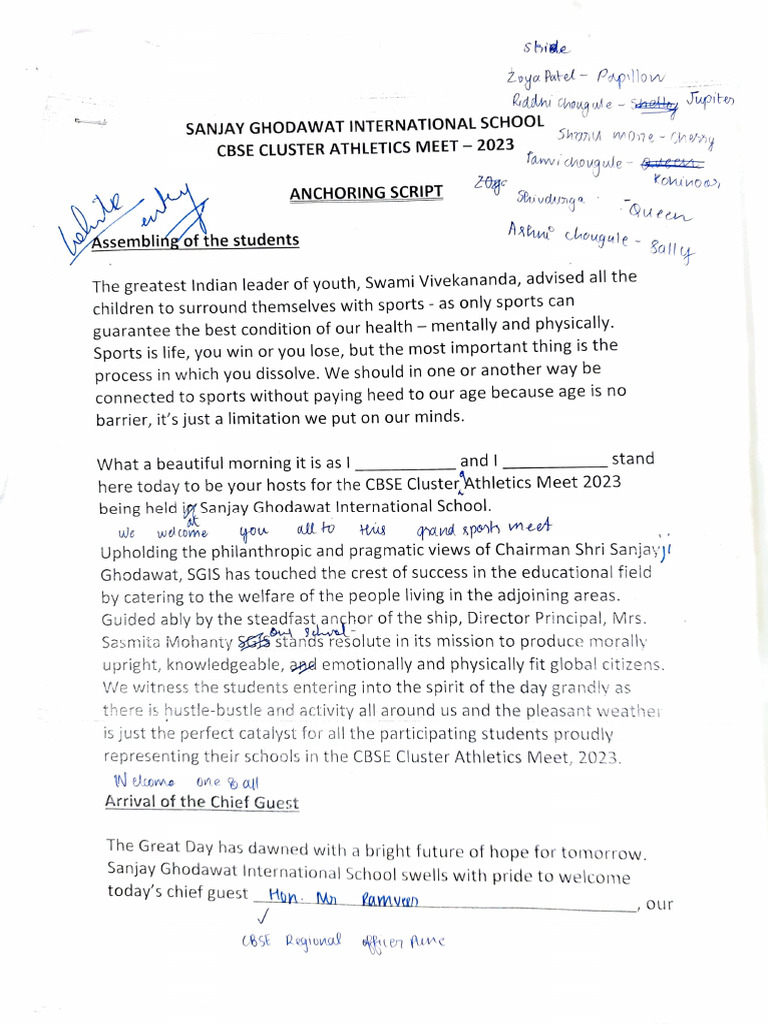 stride
Zoya Patel - Papillon
Riddhi Chougule - Shelly Jupiter
SANJAY GHODAWAT INTERNATIONAL SCHOOL
more - Cherry
CBSE CLUSTER ATHLETICS MEET – 2023
Tanvi chougule - Queen
Kohinoor,
ANCHORING SCRIPT
Shivdurga - Queen
entry
Chougule - Sally
Assembling of the students
The greatest Indian leader of youth, Swami Vivekananda, advised all the
children to surround themselves with sports - as only sports can
guarantee the best condition of our health – mentally and physically.
Sports is life, you win or you lose, but the most important thing is the
process in which you dissolve. We should in one or another way be
connected to sports without paying heed to our age because age is no
barrier, it's just a limitation we put on our minds.
What a beautiful morning it is as I ___________ and I ___________ stand
here today to be your hosts for the CBSE Cluster Athletics Meet 2023
being held in at Sanjay Ghodawat International School.
We welcome you all to this grand sports meet
Upholding the philanthropic and pragmatic views of Chairman Shri Sanjay ji
Ghodawat, SGIS has touched the crest of success in the educational field
by catering to the welfare of the people living in the adjoining areas.
Guided ably by the steadfast anchor of the ship, Director Principal, Mrs.
Sasmita Mohanty SGIS our school stands resolute in its mission to produce morally
upright, knowledgeable, and emotionally and physically fit global citizens.
We witness the students entering into the spirit of the day grandly as
there is hustle-bustle and activity all around us and the pleasant weather
is just the perfect catalyst for all the participating students proudly
representing their schools in the CBSE Cluster Athletics Meet, 2023.
Welcome one & all
Arrival of the Chief Guest
The Great Day has dawned with a bright future of hope for tomorrow.
Sanjay Ghodawat International School swells with pride to welcome
today's chief guest Hon. Mr Ramveer, our
CBSE Regional officer Pune